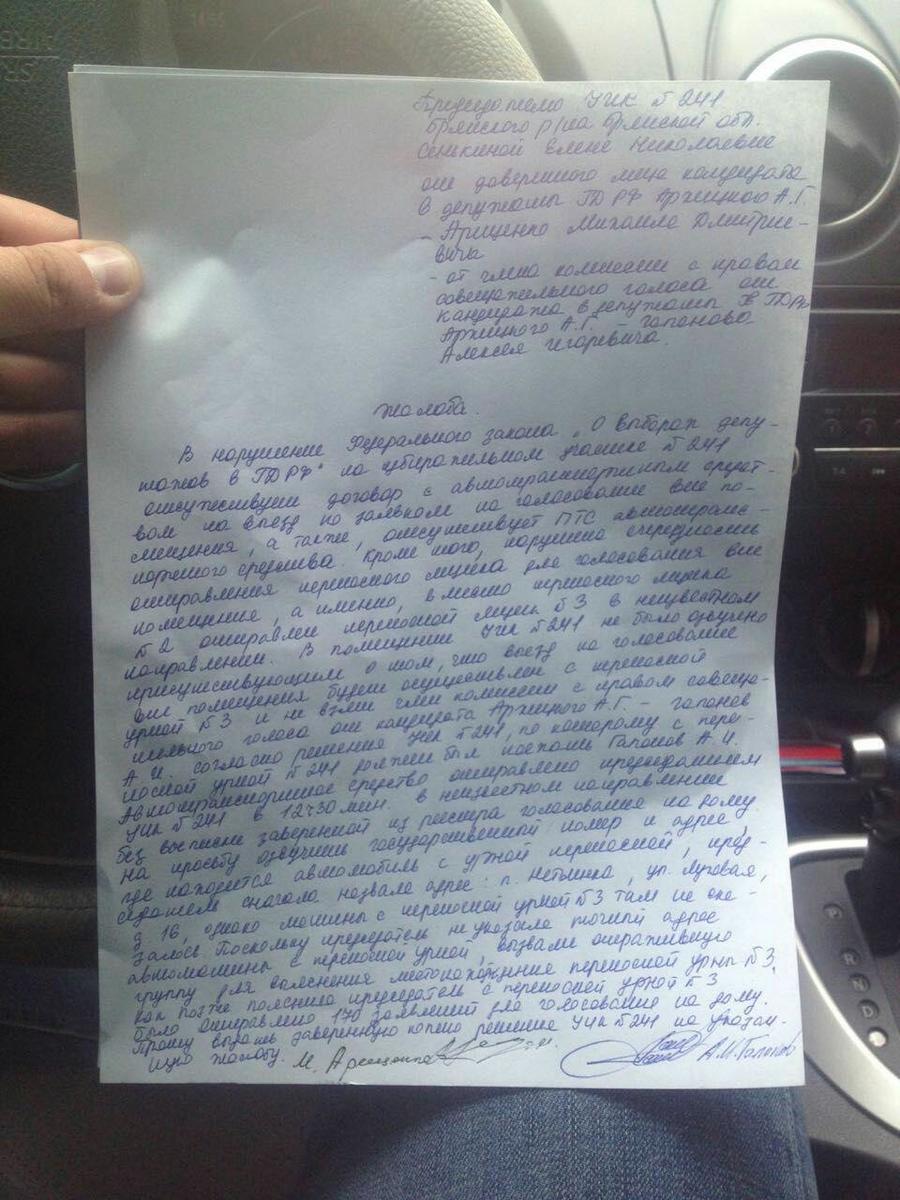 Председателю УИК №241
Брянского р/на Брянской обл.
Сенкиной Елене Николаевне
от доверенного лица кандидата
в депутаты ГД РФ Архицкого А.Г.
- Арищенко Михаила Дмитрие-
вича
- от члена комиссии с правом
совещательного голоса от
кандидата в депутаты в ГД РФ
Архицкого А.Г. - Гапонова
Алексея Игоревича.
Жалоба.
В нарушение Федерального закона "О выборах депу-
татов в ГД РФ" на избирательном участке №241
отсутствует договор с автотранспортным средст-
вом на выезд по заявкам на голосование вне по-
мещения, а также, отсутствует ПТС автотранс-
портного средства. Кроме того, нарушена очередность
отправления переносного ящика для голосования вне
помещение, а именно, вместо переносного ящика
№2 отправлен переносной ящик №3 в неизвестном
направлении. В помещении УИК №241 не было озвучено
присутствующим о том, что выезд на голосование
вне помещения будет осуществлен с переносной
урной №3 и не взят член комиссии с правом совеща-
тельного голоса от кандидата Архицкого А.Г. - Гапонов
А.И. согласно решения УИК №241, по которому с пере-
носной урной №241 должен был поехать Гапонов А.И.
Автотранспортное средство отправлено председателем
УИК №241 в 12ч30мин. в неизвестном направлении
без выписки заверенной из реестра голосование на дому.
На просьбу озвучить государственный номер и адрес,
где находится автомобиль с урной переносной, пред-
седатель сначала назвала адрес: п. Нетьинка, ул. Луговая,
д 16, однако машины с переносной урной №3 там не ока-
залось. Поскольку председатель не указала точный адрес
автомашины с переносной урной, вызвали оперативную
группу для выяснения местонахождение переносной урны №3,
как позже пояснила председатель с переносной урной №3
было отправлено 170 заявлений для голосование на дому.
Прошу выдать заверенную копию решение УИК №241 на указан-
ную жалобу. М. Арещенко А.И. Гапонов